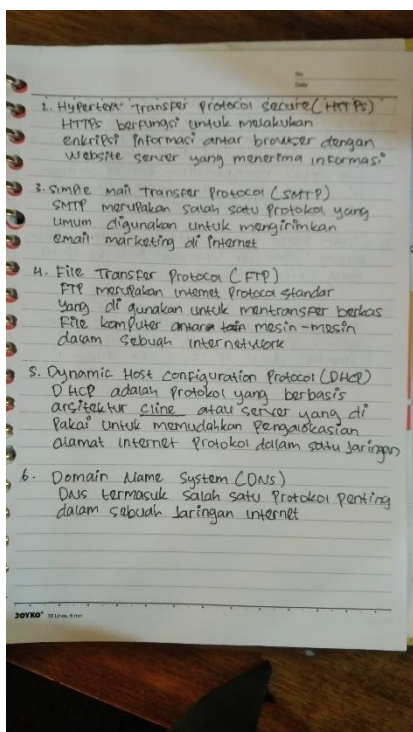 No
Date
2. Hypertext Transfer Protocol Secure (HTTPs)
HTTPs berfungsi untuk melakukan
enkripsi informasi antar browser dengan
website server yang menerima informasi
3. Simple Mail Transfer Protocol (SMTP)
SMTP merupakan salah satu protokol yang
umum digunakan untuk mengirimkan
email marketing di internet
4. File Transfer Protocol (FTP)
FTP merupakan internet protocol standar
yang di gunakan untuk mentransfer berkas
File komputer antara mesin-mesin
dalam sebuah internetwork
5. Dynamic Host Configuration Protocol (DHCP)
DHCP adalah protokol yang berbasis
arsitektur cline atau server yang di
Pakai untuk memudahkan pengalokasian
alamat internet protokol dalam satu Jaringan
6. Domain Name System (DNS)
DNS termasuk salah satu protokol penting
dalam sebuah Jaringan internet
JOYKO